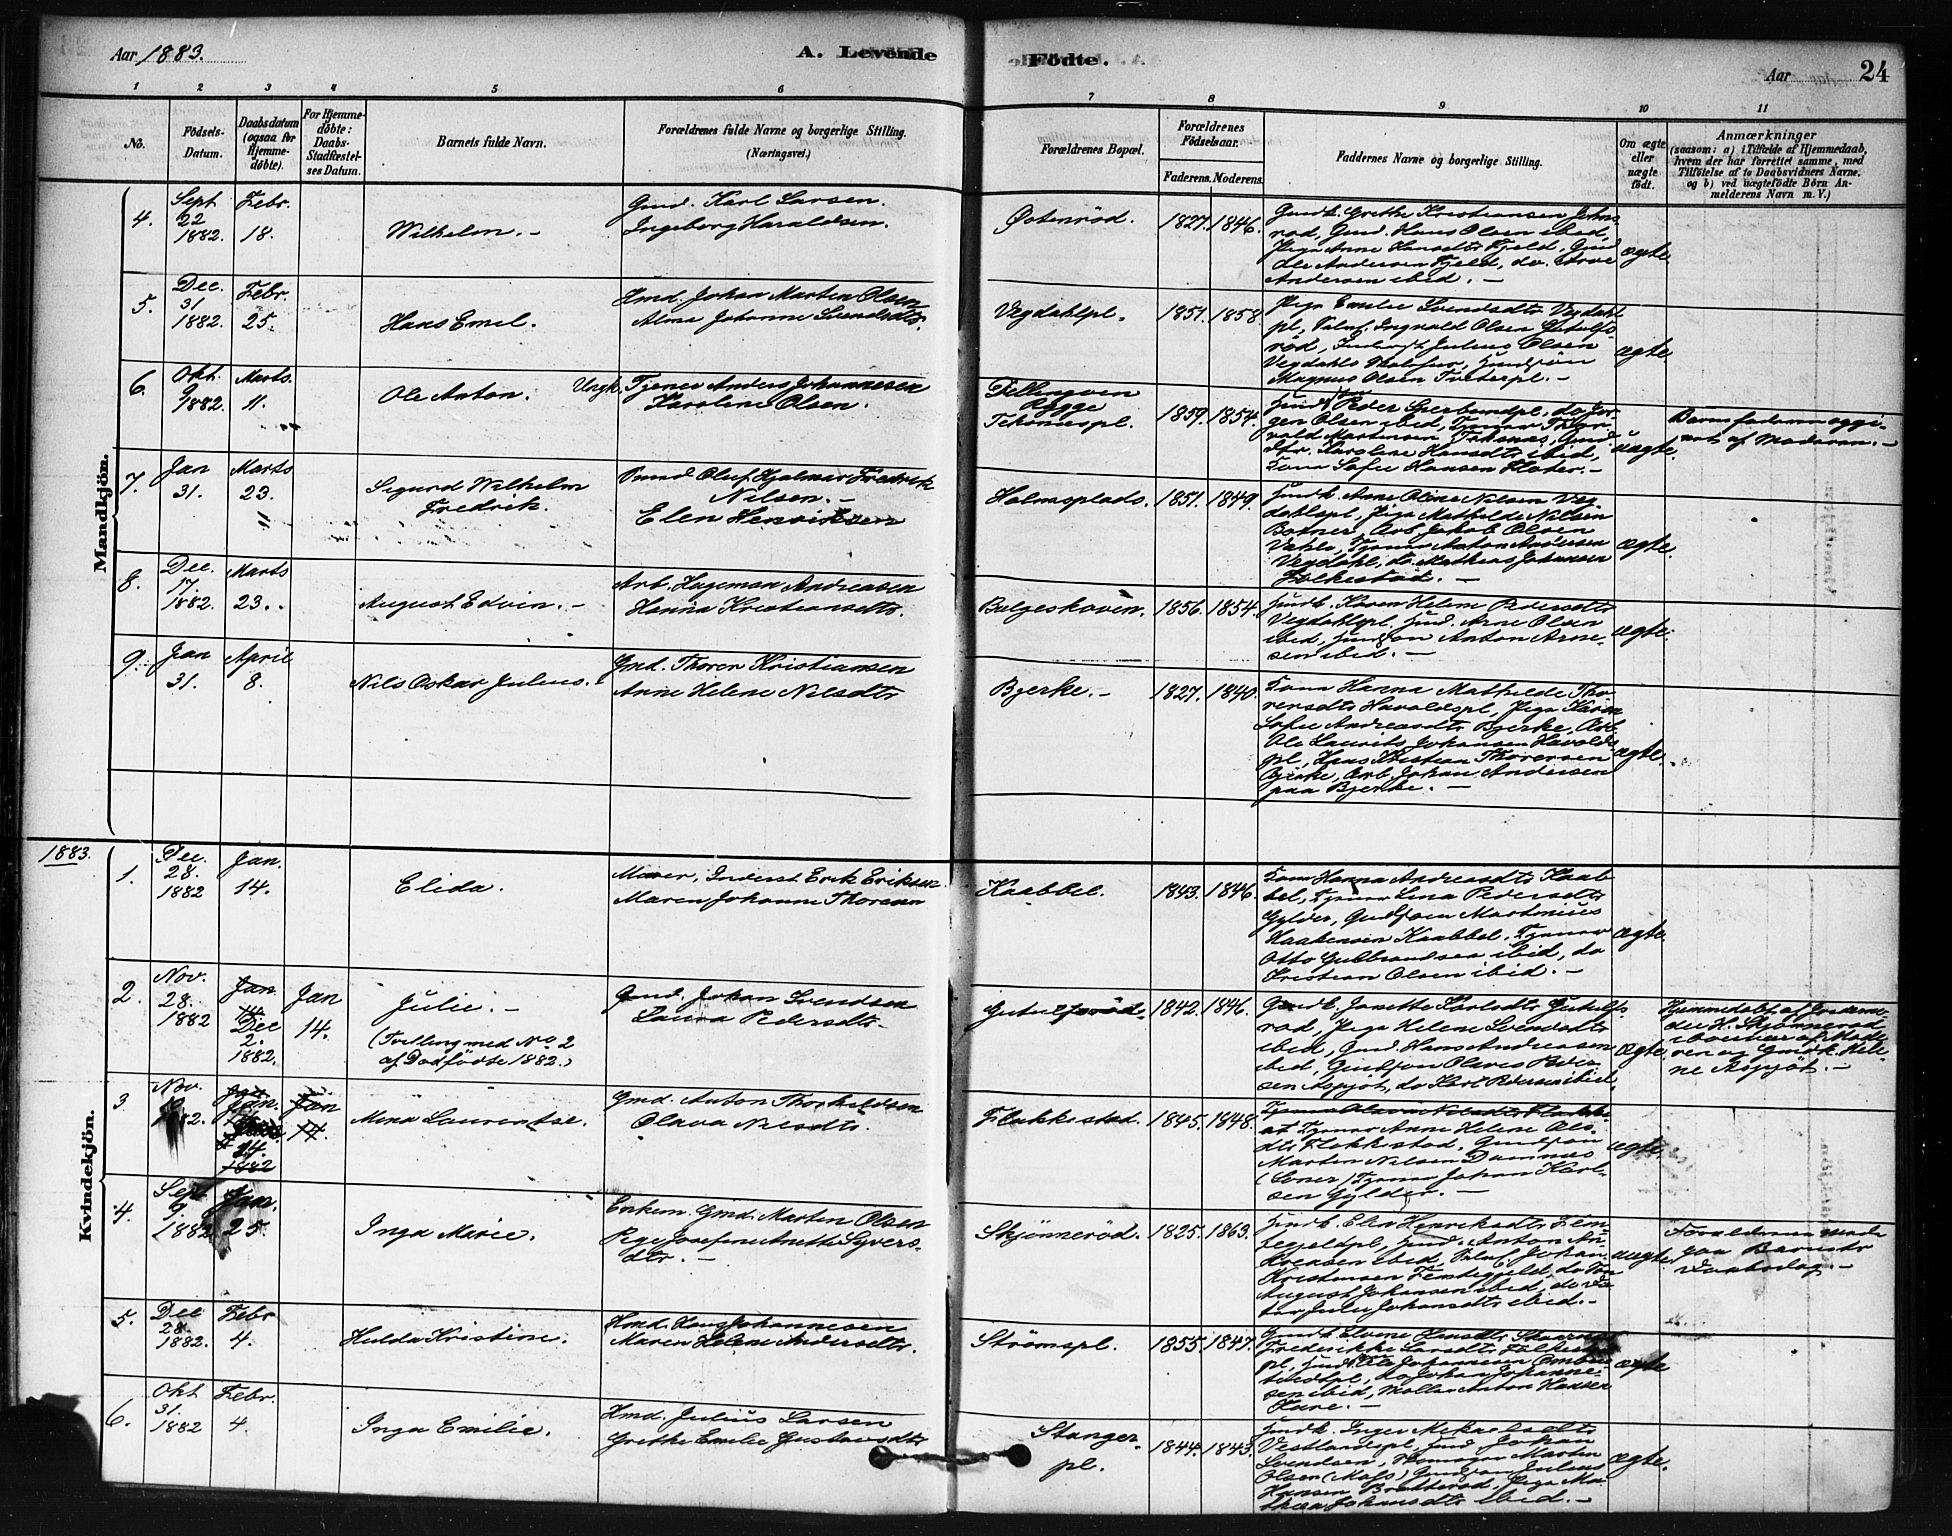 Aar 1883.
A. Levende Födte.
Aar
24
1 2 3 4 5 6 7 8 9 10 11
No.
Födsels-
Datum.
Daabsdatum
(ogsaa for
Hjemme-
döbte).
For Hjemme-
döbte:
Daabs-
Stadfæstel-
ses Datum.
Barnets fulde Navn.
Forældrenes fulde Navne og borgerlige Stilling.
(Næringsvei.)
Forældrenes Bopæl.
Forældrenes
Födselsaar.
Faderens. Moderens.
Faddernes Navne og borgerlige Stilling.
Om ægte
eller
uægte
födt.
Anmærkninger
(saasom: a) i Tilfælde af Hjemmedaab,
hvem der har forrettet samme, med
Tilföielse af to Daabsvidners Navne.
og b) ved uægtefödte Börn An-
melderens Navn m. V.)
Mandkjön.
4.
Sept
22
1882.
Febr.
18.
Wilhelm. -
Gmd. Karl Larsen.
Ingeborg Haraldsen.
Østenrød.
1827. 1846.
Gmdk. Grethe Kristiansen Johns
rød, Gmd. Hans Olsen ibid,
Pige Anne Hansdtr Fjeld, Gmd
Ole Andersen Fjeld, do. Arve
Andersen ibid. -
ægte
5.
Dec.
31
1882.
Febr.
25.
Hans Emil.
Hmd. Johan Marten Olsen
Alma Johanne Svendsdtr.
Vegdahlpl.
1851. 1858.
Pige Emilie Svendsdtr Vegdahl
pl, Ingvald Olsen Gutulfs
rød, Julius Olsen
Vegdahl
Magnus Olsen Tveterpl. -
ægte
6.
Okt.
9
1882.
Marts.
11.
Ole Anton.
Ungk. Tjener Anders Johannesen
Karoline Olsen.
Rygge
1859. 1854.
Peder do Jør-
gen Olsen ibid, Tjener Thor-
vald Martensen
Karoline Hansdtr ibid,
Tom Sofie Hansen
uægte.
Barnefaderen opgi-
vet af Moderen. -
7.
Jan
31.
Marts
23.
Sigurd Wilhelm
Fredrik.
Oluf Hjalmar Fredrik
Nilsen. -
Elen Henriksen
Holmsplads.
1851. 1849.
Anne Oline Nilsen Veg
dahlspl, Pige Mathilde Nilsen
Botner, Arb Jakob Olsen
Tjener Anton Andersen
Vegdahl, do Mathias Johansen
Folkestad. -
ægte.
8.
Dec.
17.
1882.
Marts
23.
August Edvin. -
Arb. Hageman Andreasen
Hanna Kristiansdtr.
Bølgeskoven.
1856. 1854.
Karen Helene Pedersdtr
Vegdahlpl. Arne Olsen
ibid, Anton Arne-
sen ibid. -
ægte.
9.
Jan
31.
April
8.
Nils Oskar Julius.
Gmd. Thoren Kristiansen
Anne Helene Nilsdtr
Bjerke. -
1827. 1840.
Hanna Mathilde Tho-
rensdtr Haraldspl, Pige Karen
Sofie Andreasdtr Bjerke, Arb.
Ole Laurits Johansen Haralds
pl, Hans Kristian Thorensen
Bjerke, Arb. Johan Andersen
paa Bjerke. -
ægte.
1883.
Kvindekjön.
1.
Dec.
28.
1882
Jan.
14.
Elida.
Murer, Inderst Erik Eriksen.
Maren Johanne Thoresen
Kaabbel.
1843. 1846.
Hanna Andreasdtr Kaab
bel, Tjener Lina Pedersdtr
Gylder, Gmdsøn Martinius
Haakensen Kaabbel, Tjener
Otto Gulbrandsen ibid, do
Kristian Olsen ibid. -
ægte.
2.
Nov.
28.
1882
Jan.
14.
Dec
2.
1882.
Jan
14.
Julie. -
(Tvilling med No 2
af Dødfödte 1882.)
Gmd. Johan Svendsen
Laura Pedersdtr.
Gutulfsrød.
1842. 1846.
Gmdk. Janette Karlsdtr Gutulfs
rød, Pige Helene Svendsdtr
ibid, Gmd Hans Andreasen
ibid, Gmdsøn Olaves Peder
sen Aspjøt, do Karl Pedersen ibid.
ægte
Hjemmedøbt af Jordemo-
der H. Skjønnerød
i Overvær af Mode
ren og Gmdk. Hele
ne Aspjöt. -
3
Nov.
1882.
Jan.
14.
1882
Jan
14.
Mina Laurentse.
Gmd. Anton Thorkildsen
Olava Nilsdtr.
Flakkestad.
1845. 1848.
Tjener Anne Helene Ols
dtr Flakkestad, Gmdsøn
Marten Nilsen Damnæs
(Soner) Tjener Johan Karl-
sen Gylder. -
ægte.
4.
Sept
9.
1882
Jan.
25.
Inga Marie.
Enkem. Gmd. Marten Olsen
Pige Josefine Anette Syvers-
dtr. -
Skjønnerød.
1825. 1863.
Elen Henriksdtr Fem
tegjeldpl, Anton An
dreasen ibid, Johan
Kristensen Femtegjeld, do
August Johansen ibid, do
Johansdtr ibid. -
uægte
Forældrene
paa Barnets
Daabsdag. -
5.
Dec
28.
1882.
Febr
4.
Hulda Kristine.
Hmd. Hans Johannesen
Maren Helene Andersdtr.
Strømspl.
1855. 1847.
Hansdtr
Frederikke Larsdtr Folkestad
pl, Ole Johannesen
do Johan Johanne-
sen ibid, Møller Anton Hansen
Kure. -
ægte
6.
Okt
31.
1882
Febr.
4.
Inga Emilie.
Hmd. Julius Larsen
Grethe Emilie Gustavsdtr
Stanger-
pl.
1844. 1843.
Inger Mikaelsdtr
Vestlandspl, Johan
Svendsen, Marten
Olsen (Moss) Gmdsøn Julius
Hansen Bratterød. Pige Ma-
thea Johansdtr ibid. -
ægte.